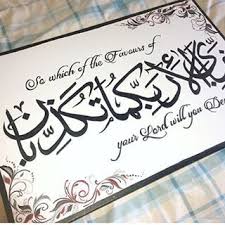 So which of the Favours of
آلَاءِ رَبِّكُمَا تُكَذِّبَانِ
your Lord will you